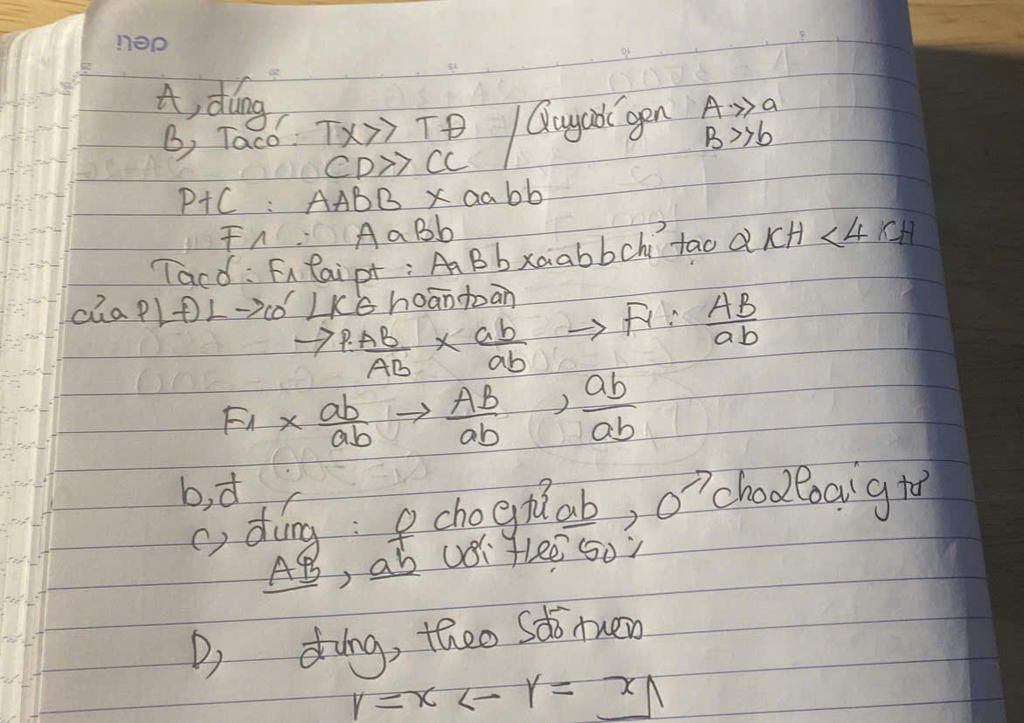 deli
A, đúng
B, Ta có: TX >> TĐ / Quy ước gen A >> a
CD >> CC B >> b
P+C : AABB x aabb
F1 : AaBb
Ta có: F1 lai pt : AaBb x aabb chỉ tạo 2 KH < 4 KH
của PLĐL → có LKG hoàn toàn
→ P: AB/AB x ab/ab → F1: AB/ab
F1 x ab/ab → AB/ab , ab/ab
b, đ
C, đúng : ♀ cho gtử ab , ♂ cho 2 loại g tử
AB , ab với
D, đúng, theo sđồ trên